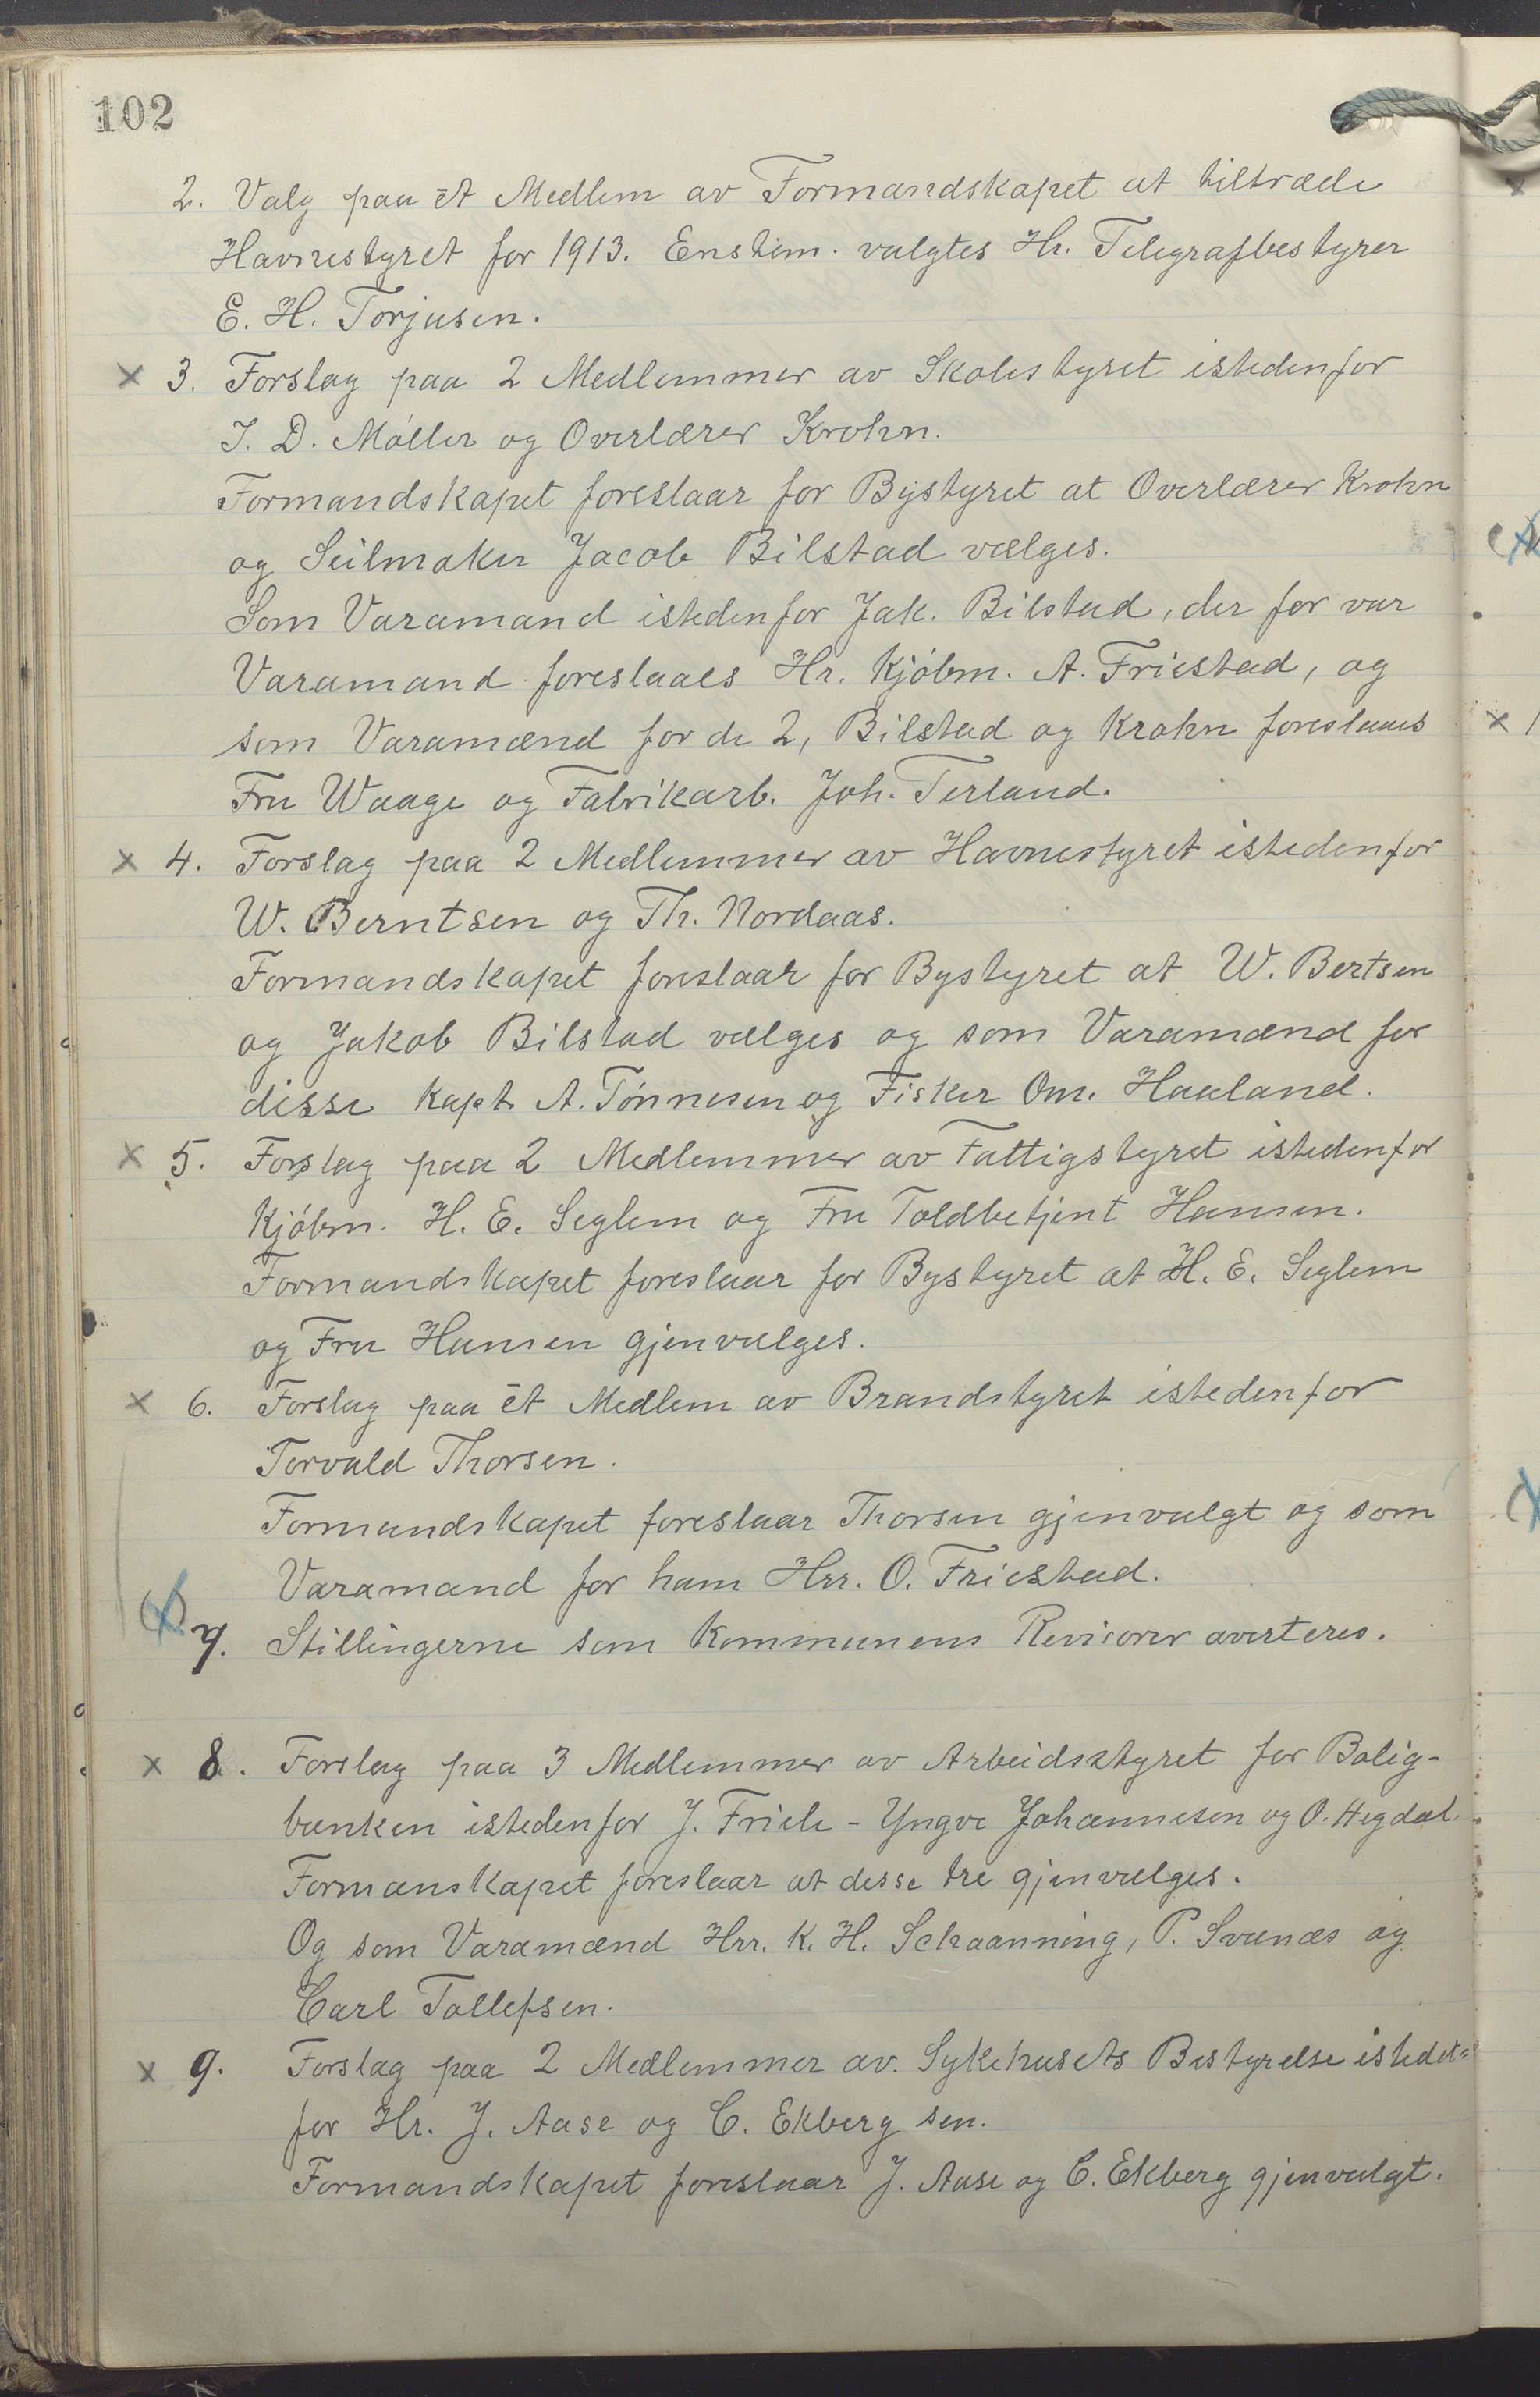 102
2. Valg paa ēt Medlem av Formandskapet at tiltræde
Havnestyret for 1913. Enstem. valgtes Hr. Telegrafbestyrer
E. H. Torjusen.
x 3. Forslag paa 2 Medlemmer av Skolestyret istedenfor
I. D. Móller og Overlærer Krohn.
Formandskapet foreslaar for Bystyret at Overlærer Krohn
og Seilmaker Jacob Bilstad vælges.
Som Varamand istedenfor Jak. Bilstad, der før var
Varamand foreslaaes Hr. Kjóbm. A. Friestad, og
som Varamænd for de 2, Bilstad og Krohn foreslaaes
Fru Waage og Fabrikarb. Joh. Terland.
x 4. Forslag paa 2 Medlemmer av Havnestyret istedenfor
W. Berntsen og Th. Nordaas.
Formandskapet foreslaar for Bystyret at W. Bertsen
og Jakob Bilstad vælges og som Varamænd for
disse Kapt. A. Tónnesen og Fisker Om. Haaland.
x 5. Forslag paa 2 Medlemmer av Fattigstyret istedenfor
Kjóbm. H. E. Seglem og Fru Toldbetjent Hansen.
Formandskapet foreslaar for Bystyret at H. E. Seglem
og Fru Hansen gjenvælges.
x 6. Forslag paa ēt Medlem av Brandstyret istedenfor
Torvald Thorsen.
Formandskapet foreslaar Thorsen gjenvalgt og som
Varamand for ham Hrr. O. Friestad.
7. Stillingerne som Kommunens Revisorer averteres.
x 8. Forslag paa 3 Medlemmer av Arbeidsstyret for Bolig-
banken istedenfor J. Friele - Yngve Johannesen og O. Hegdal.
Formanskapet foreslaar at desse tre gjenvælges.
Og som Varamænd Hrr. K. H. Schaanning, P. Svanæs og
Carl Tollefsen.
x 9. Forslag paa 2 Medlemmer av Sykehusets Bestyrelse istedet=
for Hr. J. Aase og C. Ekberg sen.
Formandskapet foreslaar J. Aase og C. Ekberg gjenvalgt.